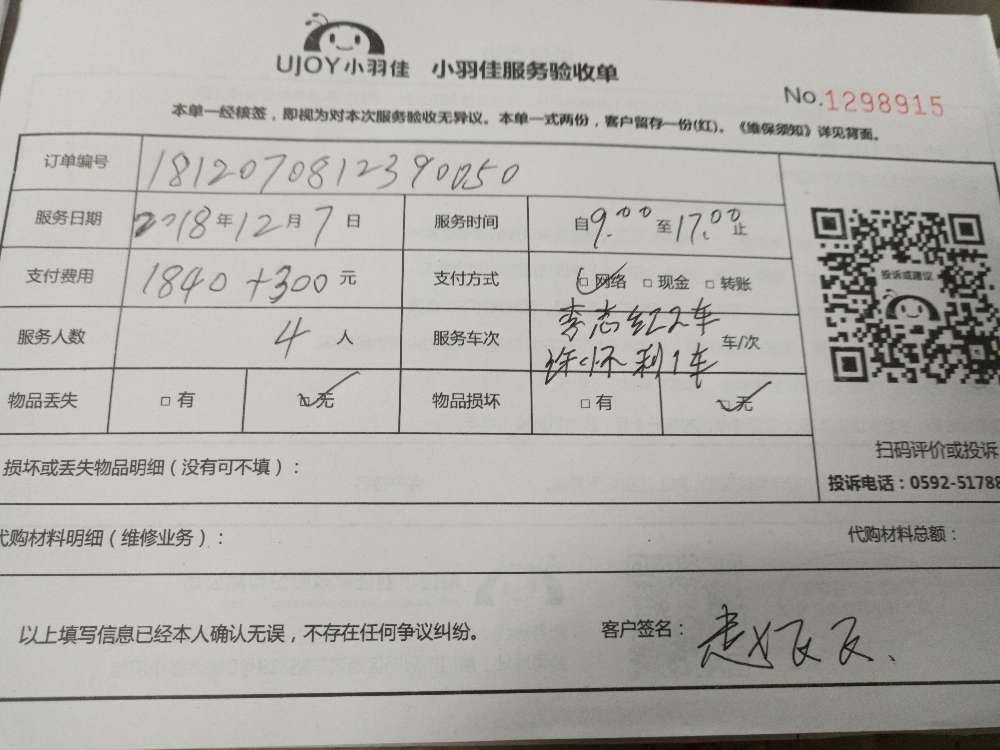 UJOY小羽佳 小羽佳服务验收单
No.1298915
本单一经核签，即视为对本次服务验收无异议。本单一式两份，客户留存一份(红)。《维保须知》详见背面。
订单编号 1812070812390050
服务日期 2018年12月7日 服务时间 自9:00至17:00止
支付费用 1840+300元 支付方式 □网络 □现金 □转账
投诉或建议
服务人数 4人 服务车次 李志红2车 许怀利1车 车/次
物品丢失 □有 □无 物品损坏 □有 □无
扫码评价或投诉
投诉电话：0592-51788
损坏或丢失物品明细（没有可不填）：
代购材料明细（维修业务）： 代购材料总额：
以上填写信息已经本人确认无误，不存在任何争议纠纷。 客户签名：